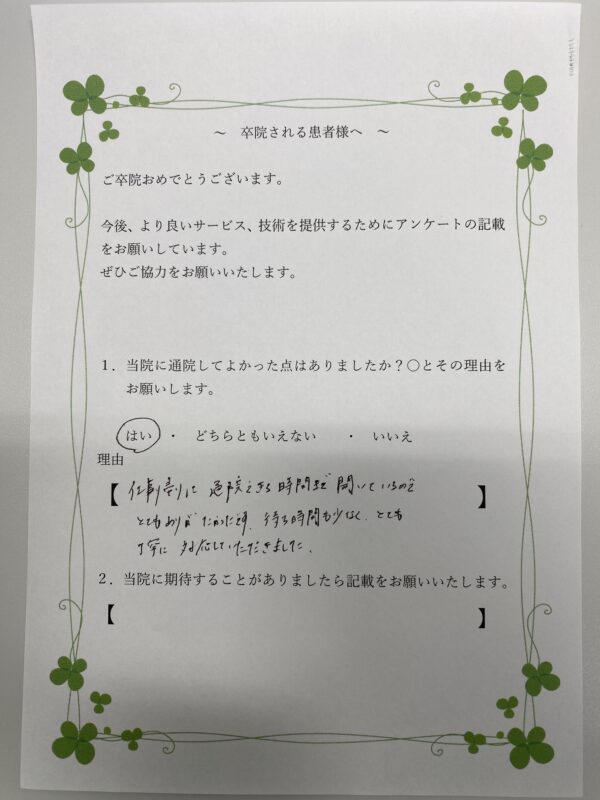 ～　卒院される患者様へ　～
ご卒院おめでとうございます。
今後、より良いサービス、技術を提供するためにアンケートの記載
をお願いしています。
ぜひご協力をお願いいたします。
１．当院に通院してよかった点はありましたか？〇とその理由を
お願いします。
はい　・　どちらともいえない　・　いいえ
理由
【 仕事帰りに 通院できる時間まで 開いているので 】
とてもありがたかったです。待ち時間も少なく、とても
丁寧に 対応していただきました。
２．当院に期待することがありましたら記載をお願いいたします。
【　】